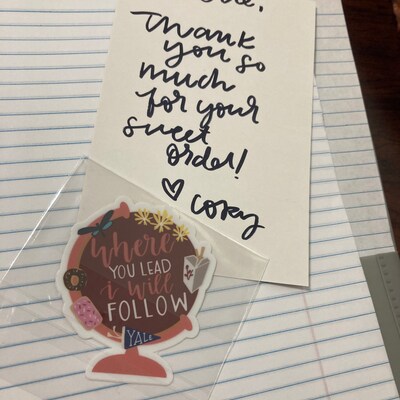 Thank
you so
much
for your
sweet
order!
♡ Cory
where
YOU LEAD
i will
FOLLOW
YALE